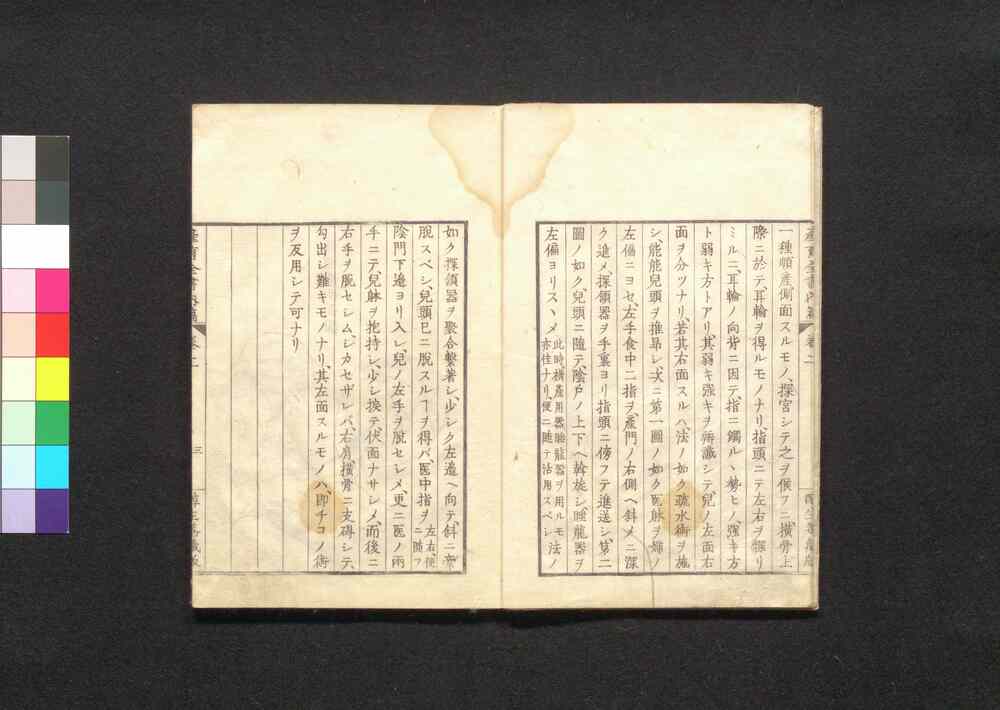 一種順産側面スルモノ、探宮シテ之ヲ候フニ横骨上
際ニ於テ耳輪ヲ得ルモノナリ、指頭ニテ左右ヲ探リ
ミルニ、耳輪ノ向背ニ因テ、指ニ觸ルヽ勢ヒノ、強キ方
ト弱キ方トアリ、其弱キ強キヲ辨識シテ、兒ノ左面右
面ヲ分ツナリ、若其右面スルハ、法ノ如ク疏水術ヲ施
シ、能能兒頭ヲ推昂シ、次ニ第一圖ノ如ク医躰ヲ婦ノ
左偏ニヨセ、左手食中二指ヲ、産門ノ右側ヘ斜メニ深
ク進メ、探頷器ヲ手裏ヨリ指頭ニ傍フテ進送シ、第二
圖ノ如ク、兒頭ニ隨テ、陰戸ノ上下ヘ斡旋シ、睡龍器ヲ
左偏ヨリスヽメ 此時、横産用器睡龍器ヲ用ルモ
亦佳ナリ、便ニ隨テ活用スベシ 法ノ
如ク探頷器ヲ聚合繋著シ、少シク左邉ヘ向テ、斜ニ牽
脱スベシ、兒頭已ニ脱スルヿヲ得バ、医中指ヲ 左右、便
ニ隨フ
陰門下邉ヨリ入レ兒ノ左手ヲ脱セシメ更ニ医ノ兩
手ニテ、兒躰ヲ抱持シ、少シ換テ、伏面ナサシメ、而後ニ
右手ヲ脱セシム、シカセザレバ、右肩、横骨ニ支碍シテ、
勾出シ難キモノナリ、其左面スルモノハ、即チコノ術
ヲ反用シテ可ナリ
三